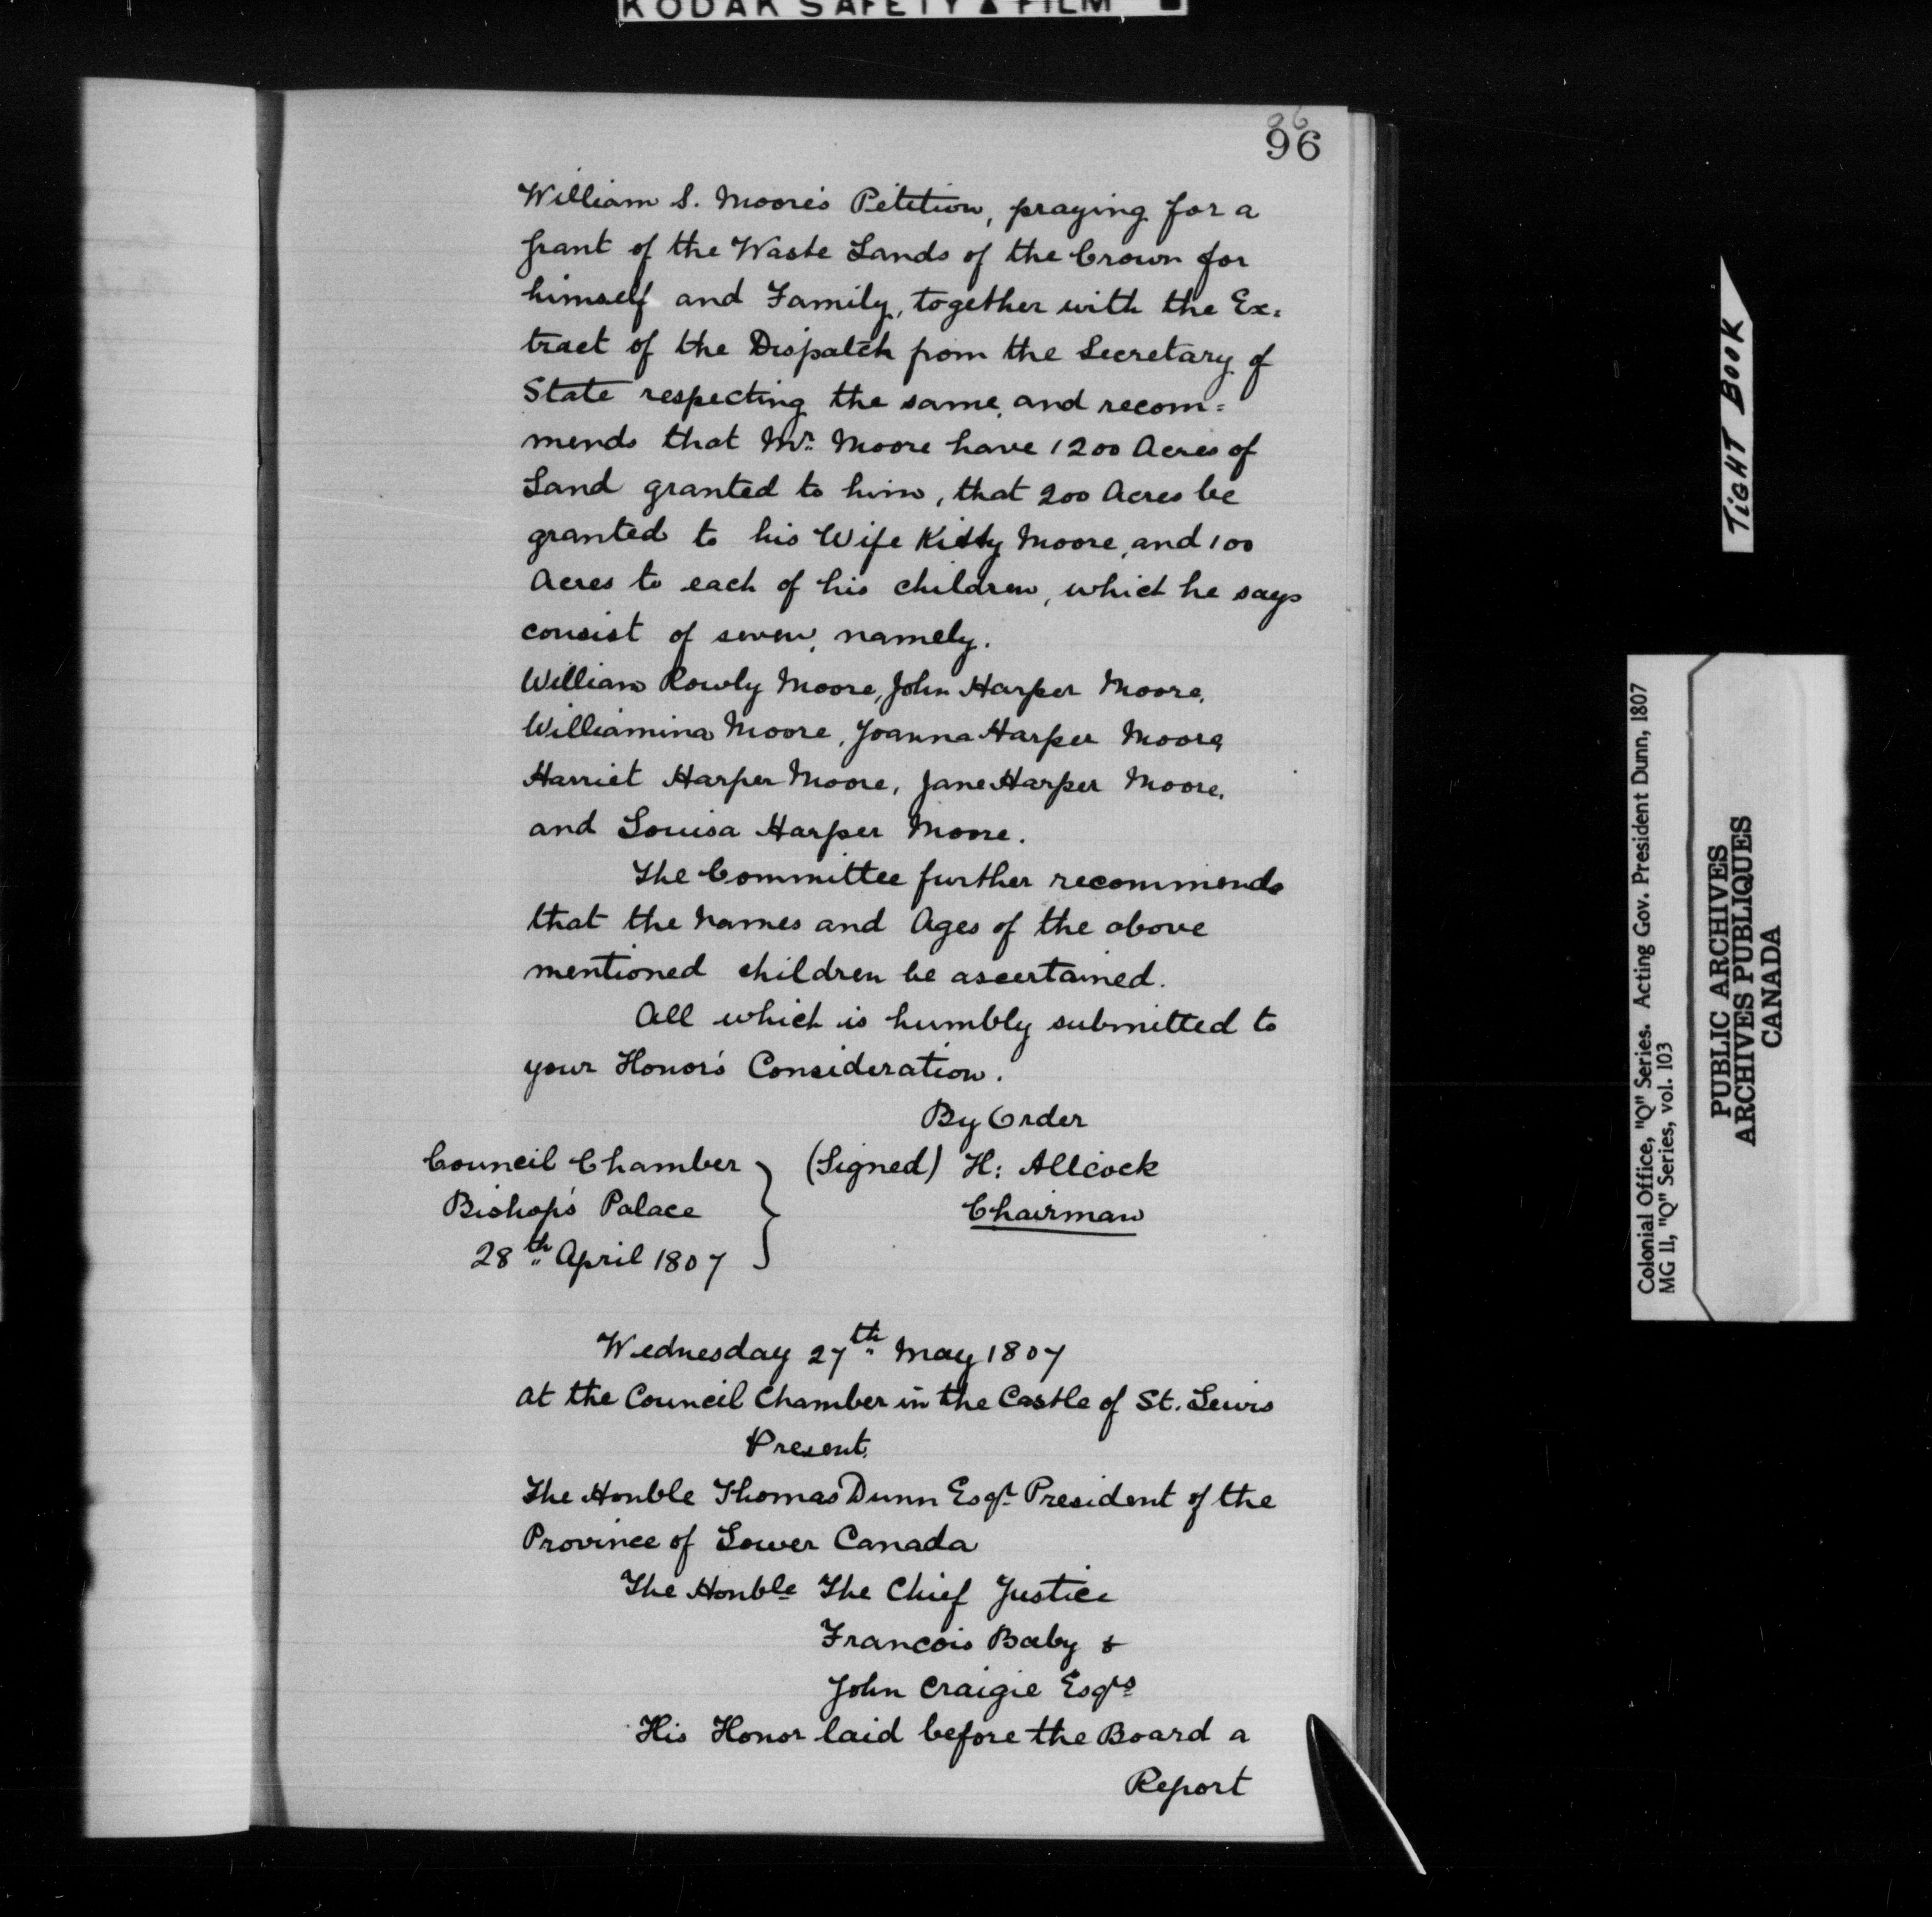 KODAK SAFETY ▲ FILM
96
96
William S. Moore's Petition, praying for a
grant of the Waste Lands of the Crown for
himself and Family, together with the Ex=
tract of the Dispatch from the Secretary of
State respecting the same, and recom=
mends that Mr. Moore have 1200 Acres of
Land granted to him, that 200 Acres be
granted to his Wife Kitty Moore, and 100
Acres to each of his children, which he says
consist of seven, namely.
William Rowly Moore, John Harper Moore,
Williamina Moore, Joanna Harper Moore,
Harriet Harper Moore, Jane Harper Moore,
and Louisa Harper Moore.
The Committee further recommends
that the Names and Ages of the above
mentioned children be ascertained.
All which is humbly submitted to
your Honor's Consideration.
By Order
Council Chamber (Signed) H: Allcock
Bishop's Palace Chairman
28th April 1807
Wednesday 27th May 1807
At the Council Chamber in the Castle of St. Lewis
Present.
The Honble Thomas Dunn Esqr. President of the
Province of Lower Canada
The Honble The Chief Justice
Francois Baby &
John Craigie Esqrs
His Honor laid before the Board a
Report
TIGHT BOOK
Colonial Office, "Q" Series. Acting Gov. President Dunn, 1807
MG 11, "Q" Series, vol. 103
PUBLIC ARCHIVES
ARCHIVES PUBLIQUES
CANADA